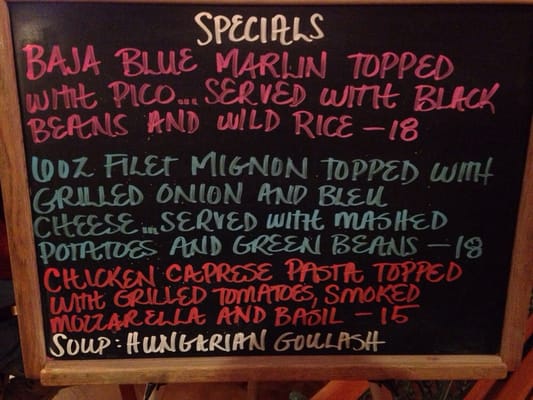 SPECIALS
BAJA BLUE MARLIN TOPPED
WITH PICO... SERVED WITH BLACK
BEANS AND WILD RICE - 18
6OZ FILET MIGNON TOPPED WITH
GRILLED ONION AND BLEU
CHEESE... SERVED WITH MASHED
POTATOES AND GREEN BEANS - 18
CHICKEN CAPRESE PASTA TOPPED
WITH GRILLED TOMATOES, SMOKED
MOZZARELLA AND BASIL - 15
SOUP: HUNGARIAN GOULASH